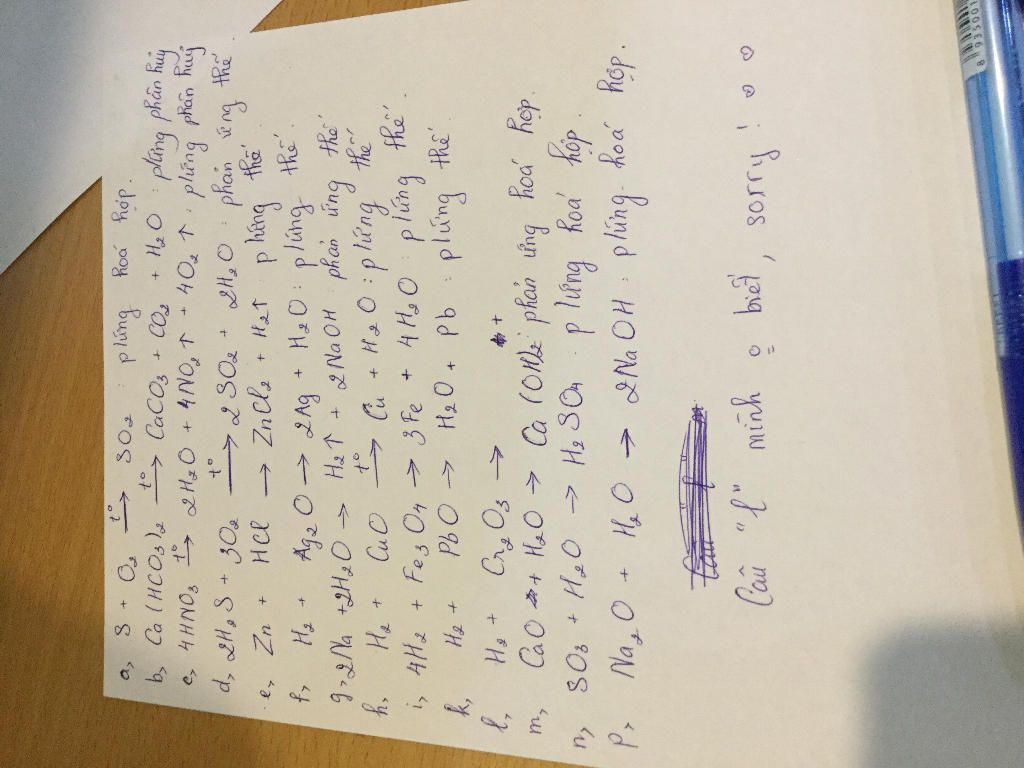 a, S + O₂ →(t°) SO₂ : p/ứng hoá hợp.
b, Ca(HCO₃)₂ →(t°) CaCO₃ + CO₂ + H₂O : p/ứng phân huỷ
c, 4HNO₃ →(t°) 2H₂O + 4NO₂↑ + 4O₂↑ : p/ứng phân huỷ
d, 2H₂S + 3O₂ →(t°) 2SO₂ + 2H₂O : phản ứng thế
e, Zn + HCl → ZnCl₂ + H₂↑ : p/ứng thế.
f, H₂ + Ag₂O → 2Ag + H₂O : p/ứng thế.
g, 2Na + 2H₂O → H₂↑ + 2NaOH : phản ứng thế
h, H₂ + CuO →(t°) Cu + H₂O : p/ứng thế
i, 4H₂ + Fe₃O₄ → 3Fe + 4H₂O : p/ứng thế.
k, H₂ + PbO → H₂O + Pb : p/ứng thế.
l, H₂ + Cr₂O₃ → +
m, CaO + H₂O → Ca(OH)₂ : phản ứng hoá hợp.
n, SO₃ + H₂O → H₂SO₄ : p/ứng hoá hợp.
p, Na₂O + H₂O → 2NaOH : p/ứng hoá hợp.
Câu "l" mình o biết, sorry!